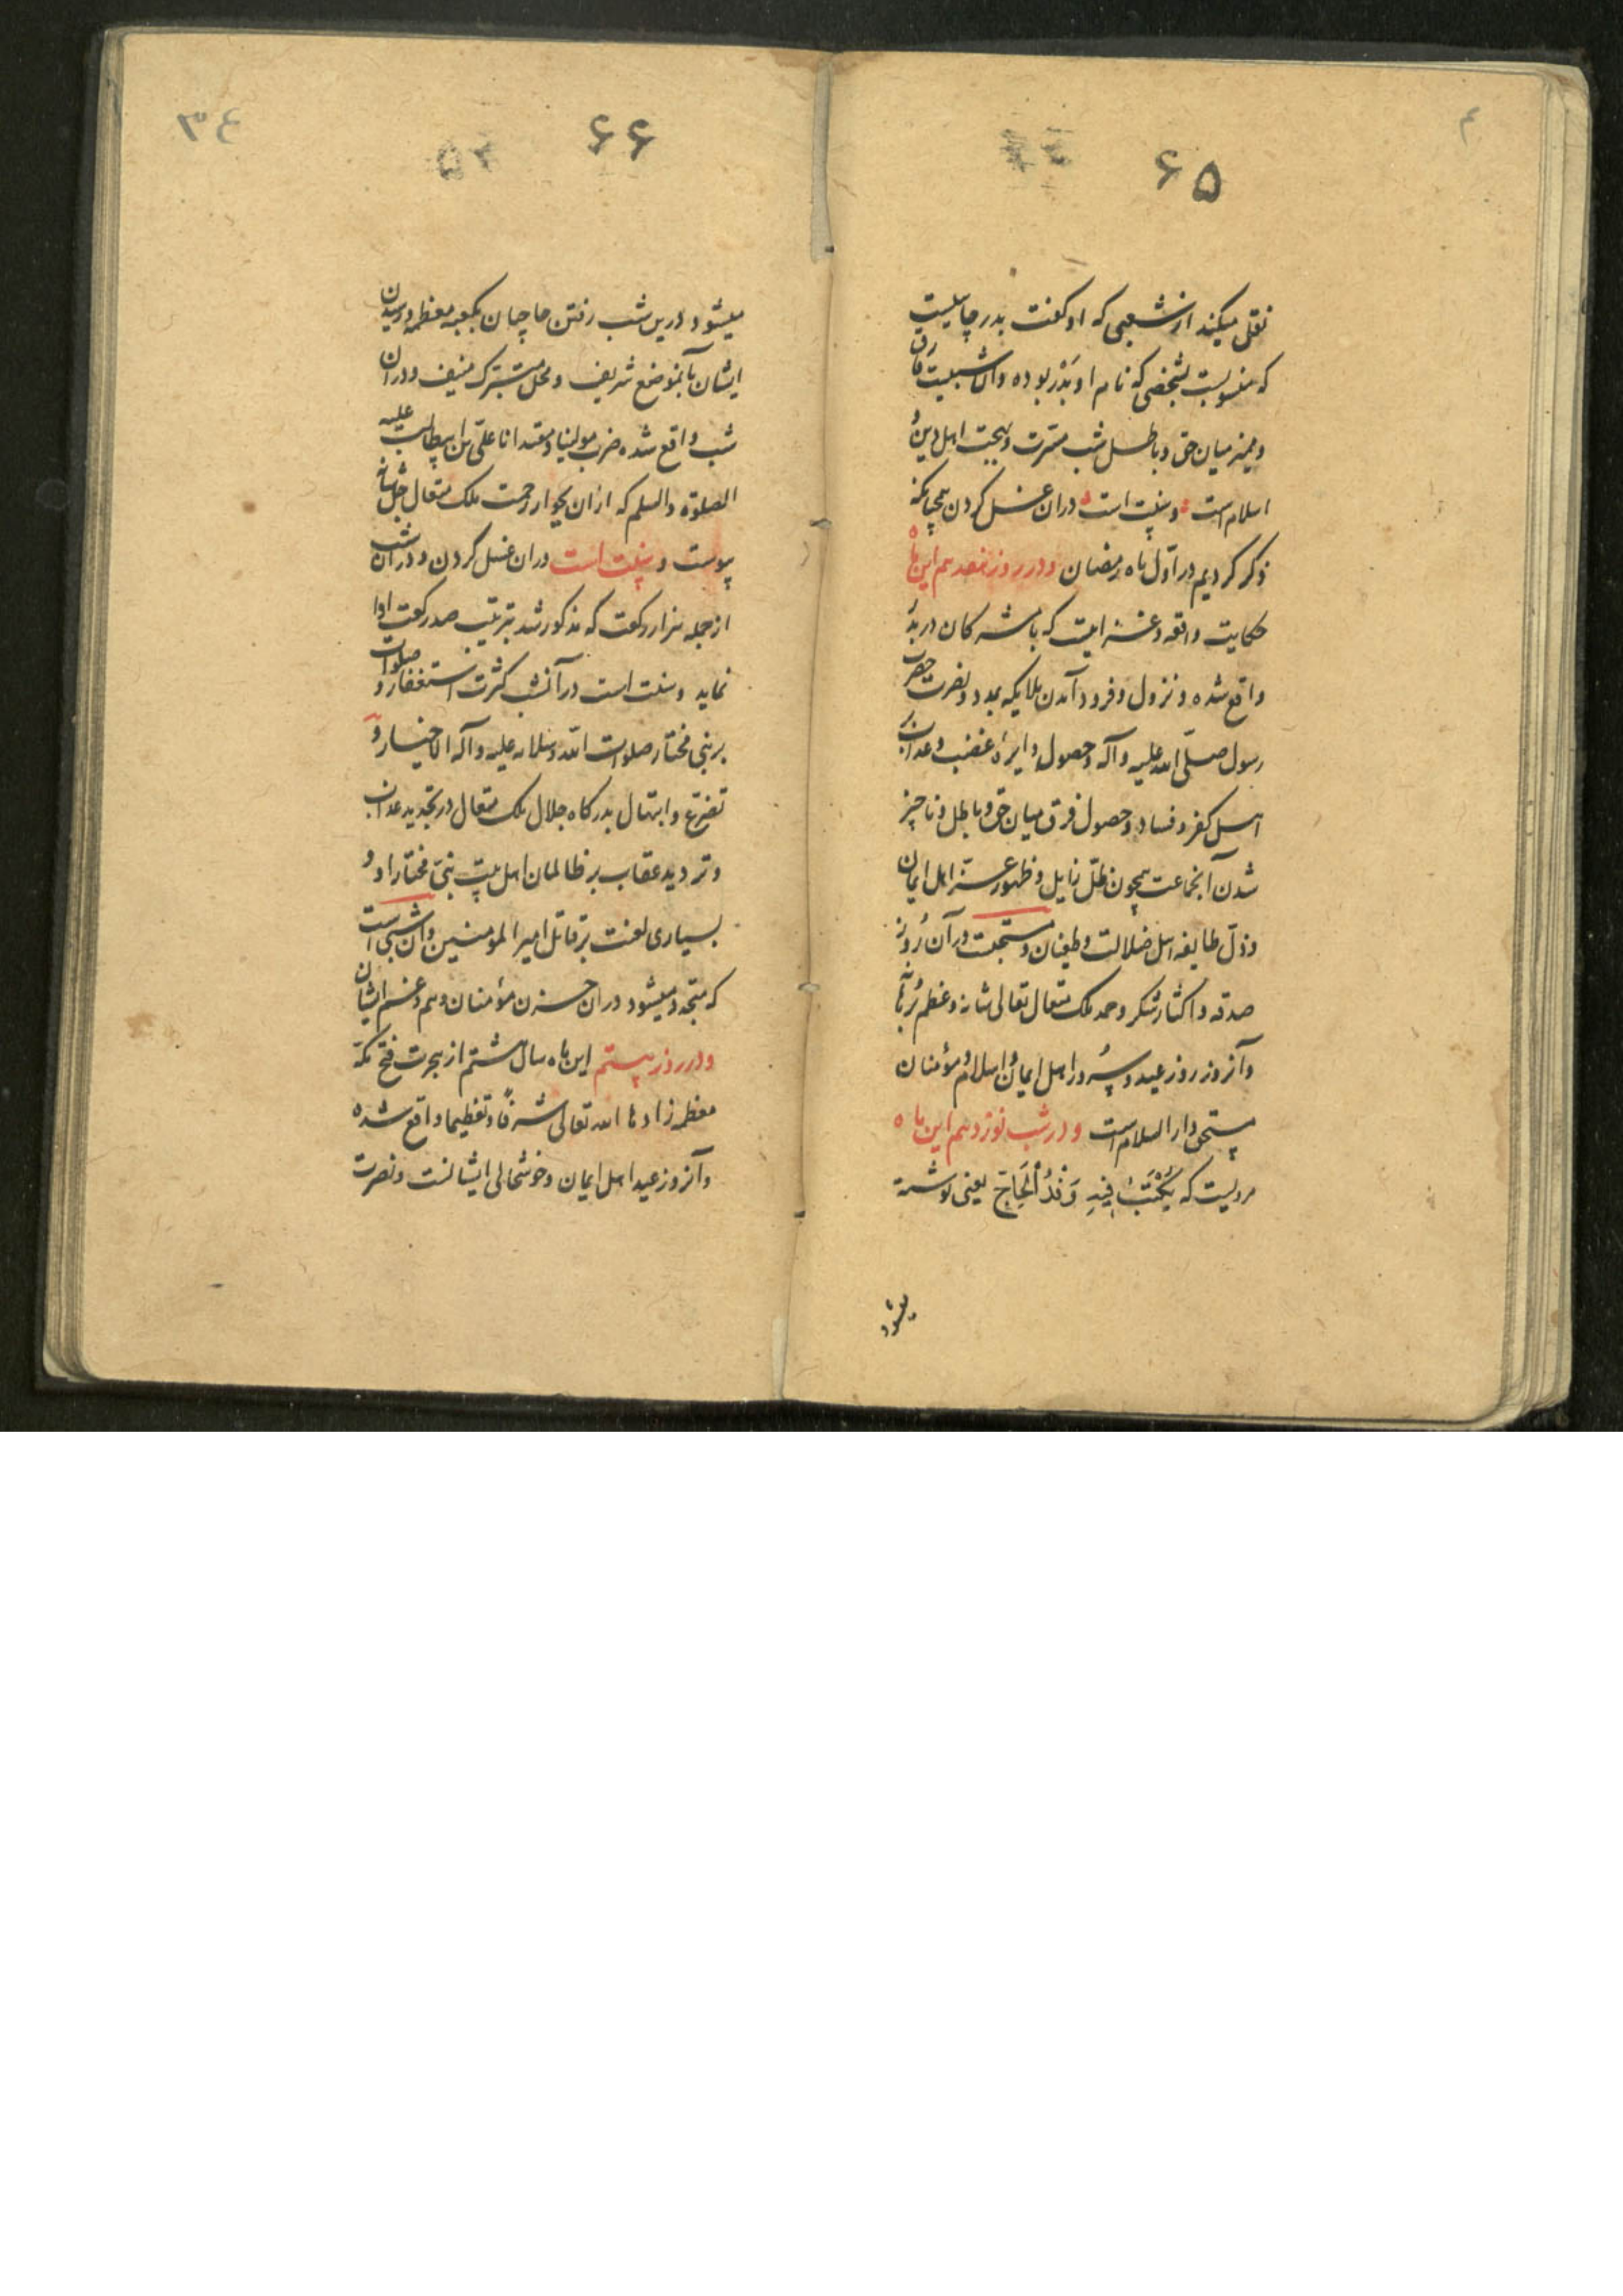 ۶۵
نقل میکند از شعبی که او گفت بدر چاهیست
که منسوبست بشخصی که نام او بَدْر بوده والا شبیست فارق
و ممیز میان حق و باطل شب مسرت و بهجت اهل دین و
اسلام است و سنت است دران غسل کردن همچنانکه
ذکر کردیم در اوّل ماه رمضان و در روز هفدهم این ماه
حکایت واقعه و غزاییست که با مشرکان در بدر
واقع شده و نزول و فرود آمدن ملایکه بمدد و نصرت حضرت
رسول صلّی الله علیه وآله و حصول دایره غضب و عذاب بر
اهل کفر و فساد و حصول فرق میان حق و باطل و ناچیز
شدن آنجماعت همچون ظلّ زایل و ظهور عزّ اهل ایمان
و ذلّ طایفه اهل ضلالت و طغیان و مستحبست در آن روز
صدقه و اکثار شکر و حمد ملک متعال تعالی شانه و عظم برهانه
و آنروز روز عید و سُرور اهل ایمان و اسلام و مؤمنان
مستحق دار السلام است و در شب نوزدهم این ماه
مرویست که یُکْتَبُ فِیهِ وَفْدُ الْحَاجّ یعنی نوشته
میشود
۶۶
٣٤
میشود درین شب رفتن حاجیان بکعبه معظمه و رسیدن
ایشان بآنموضع شریف و محل متبرک منیف و در آن
شب واقع شده ضرب مولینا و مقتدانا علیّ بن ابیطالب علیه
الصلوة والسلم که ازان بجوار رحمت ملک متعال جل شانه
پیوست و سنت است دران غسل کردن و در آن شب
از جمله هزار رکعت که مذکور شد بترتیب صد رکعت ادا
نماید و سنت است در آنشب کثرت استغفار و صلوات
بر نبی مختار صلوات الله وسلامه علیه وآله الاخیار و
تضرّع و ابتهال بدرگاه جلال ملک متعال در تجدید عذاب
و تردید عقاب بر ظالمان اهل بیت نبیّ مختار او و
بسیاری لعنت بر قاتل امیر المؤمنین و آن شبی است
که متجدد میشود دران حزن مؤمنان و هم و غم ایشان
و در روز بیستم این ماه سال هشتم از هجرت فتح مکه
معظمه زادها الله تعالی شرفًا و تعظیما واقع شده
و آنروز عید اهل ایمان و خوشحالی ایشانست و نصرت